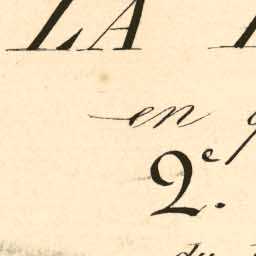 LA
en
2e.
du